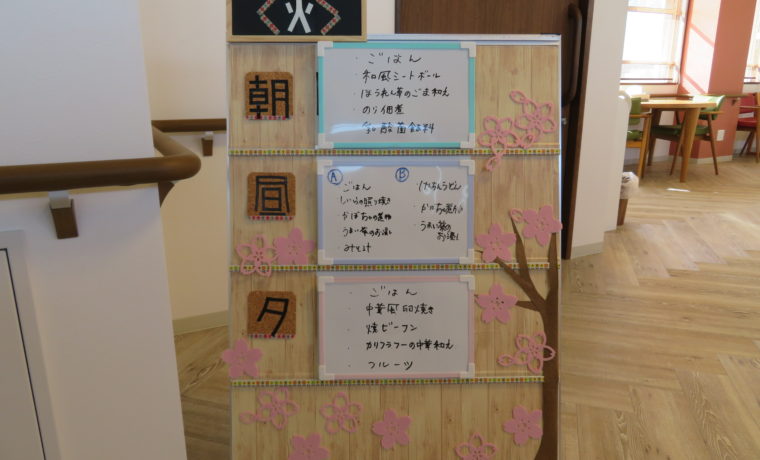 火
朝
・ごはん
・和風ミートボール
・ほうれん草のごま和え
・のり佃煮
・乳酸菌飲料
昼
Ⓐ
・ごはん
・しいらの照り焼き
・かぼちゃの煮物
・うまい菜のお浸し
・みそ汁
Ⓑ
・けんちんうどん
・かぼちゃの煮物
・うまい菜のお浸し
夕
・ごはん
・中華風卵焼き
・焼ビーフン
・カリフラワーの中華和え
・フルーツ